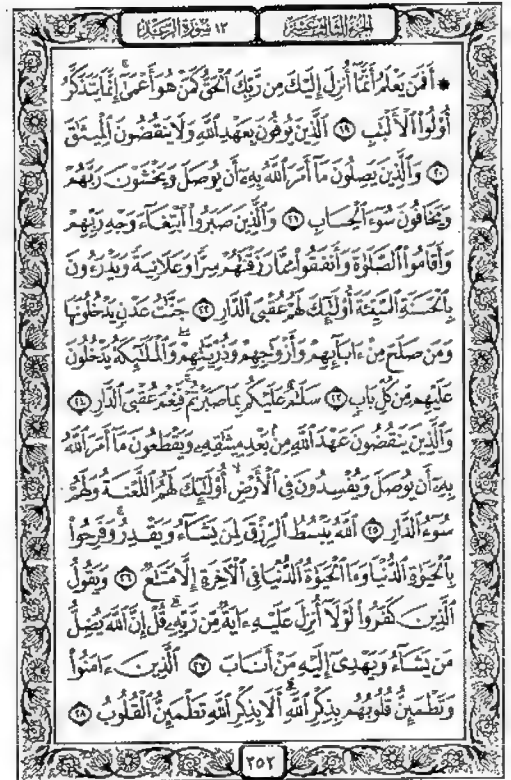 الجزء الثالث عشر
١٣ سورة الرعد
۞ أَفَمَن يَعْلَمُ أَنَّمَا أُنزِلَ إِلَيْكَ مِن رَّبِّكَ الْحَقُّ كَمَنْ هُوَ أَعْمَىٰ إِنَّمَا يَتَذَكَّرُ
أُوْلُواْ الْأَلْبَٰبِ ١٩ الَّذِينَ يُوفُونَ بِعَهْدِ اللَّهِ وَلَا يَنقُضُونَ الْمِيثَٰقَ
٢٠ وَالَّذِينَ يَصِلُونَ مَا أَمَرَ اللَّهُ بِهِۦٓ أَن يُوصَلَ وَيَخْشَوْنَ رَبَّهُمْ
وَيَخَافُونَ سُوٓءَ الْحِسَابِ ٢١ وَالَّذِينَ صَبَرُواْ ابْتِغَآءَ وَجْهِ رَبِّهِمْ
وَأَقَامُواْ الصَّلَوٰةَ وَأَنفَقُواْ مِمَّا رَزَقْنَٰهُمْ سِرًّا وَعَلَانِيَةً وَيَدْرَءُونَ
بِالْحَسَنَةِ السَّيِّئَةَ أُوْلَٰٓئِكَ لَهُمْ عُقْبَى الدَّارِ ٢٢ جَنَّٰتُ عَدْنٍ يَدْخُلُونَهَا
وَمَن صَلَحَ مِنْ ءَابَآئِهِمْ وَأَزْوَٰجِهِمْ وَذُرِّيَّٰتِهِمْ وَالْمَلَٰٓئِكَةُ يَدْخُلُونَ
عَلَيْهِم مِّن كُلِّ بَابٍ ٢٣ سَلَٰمٌ عَلَيْكُم بِمَا صَبَرْتُمْ فَنِعْمَ عُقْبَى الدَّارِ ٢٤
وَالَّذِينَ يَنقُضُونَ عَهْدَ اللَّهِ مِنۢ بَعْدِ مِيثَٰقِهِۦ وَيَقْطَعُونَ مَا أَمَرَ اللَّهُ
بِهِۦٓ أَن يُوصَلَ وَيُفْسِدُونَ فِي الْأَرْضِ أُوْلَٰٓئِكَ لَهُمُ اللَّعْنَةُ وَلَهُمْ
سُوٓءُ الدَّارِ ٢٥ اللَّهُ يَبْسُطُ الرِّزْقَ لِمَن يَشَآءُ وَيَقْدِرُ وَفَرِحُواْ
بِالْحَيَوٰةِ الدُّنْيَا وَمَا الْحَيَوٰةُ الدُّنْيَا فِي الْآخِرَةِ إِلَّا مَتَٰعٌ ٢٦ وَيَقُولُ
الَّذِينَ كَفَرُواْ لَوْلَآ أُنزِلَ عَلَيْهِ ءَايَةٌ مِّن رَّبِّهِۦ قُلْ إِنَّ اللَّهَ يُضِلُّ
مَن يَشَآءُ وَيَهْدِىٓ إِلَيْهِ مَنْ أَنَابَ ٢٧ الَّذِينَ ءَامَنُواْ
وَتَطْمَئِنُّ قُلُوبُهُم بِذِكْرِ اللَّهِ أَلَا بِذِكْرِ اللَّهِ تَطْمَئِنُّ الْقُلُوبُ ٢٨
٢٥٢